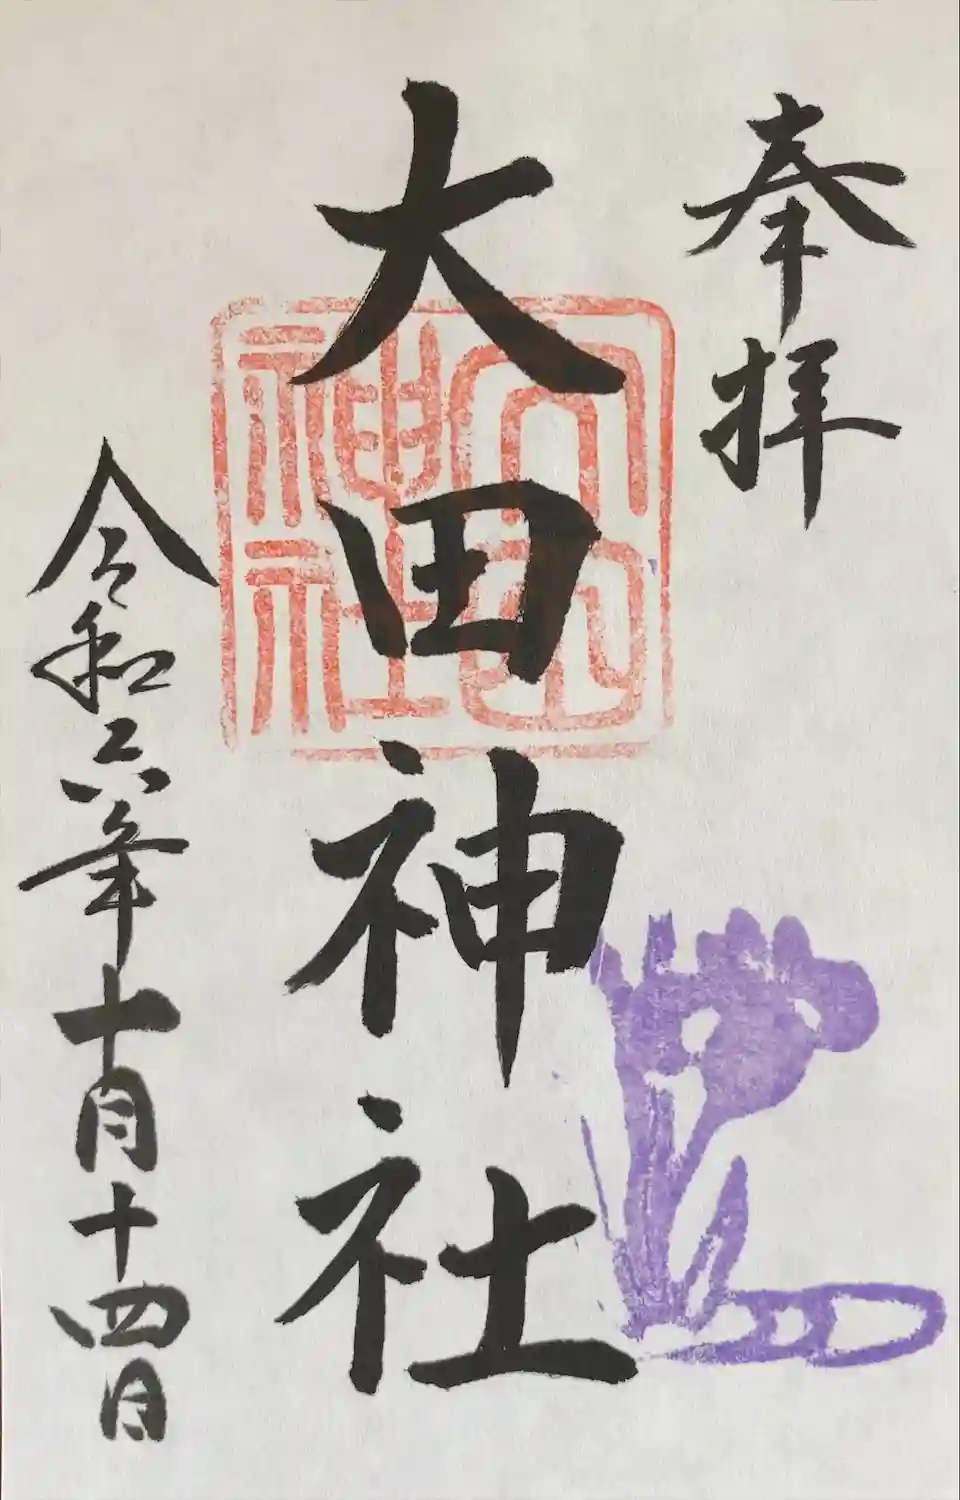 奉拝
大田神社
大田神社
令和六年十月十四日